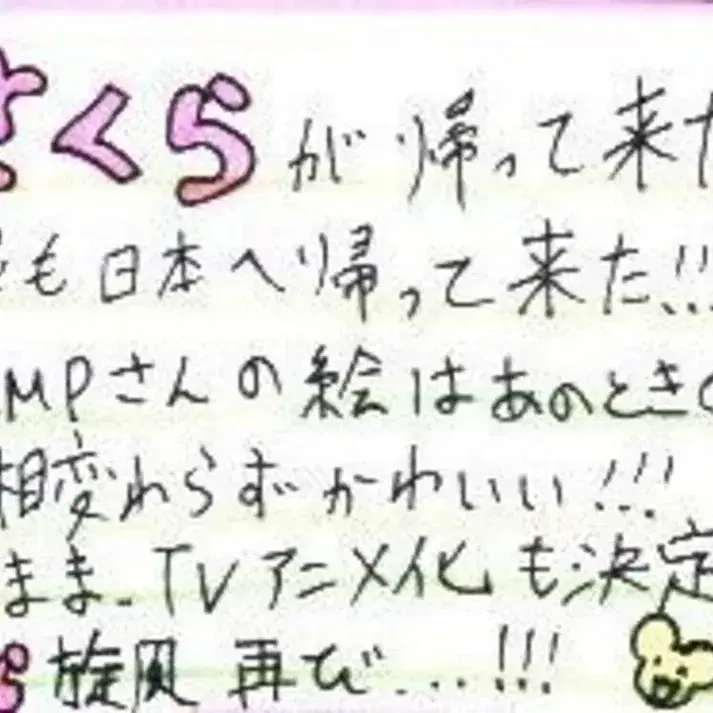 さくらが帰って来た
も日本へ帰って来た!!
MPさんの絵はあのときの
相変わらずかわいい!!!
まま、TVアニメ化も決定
旋風 再び...!!!